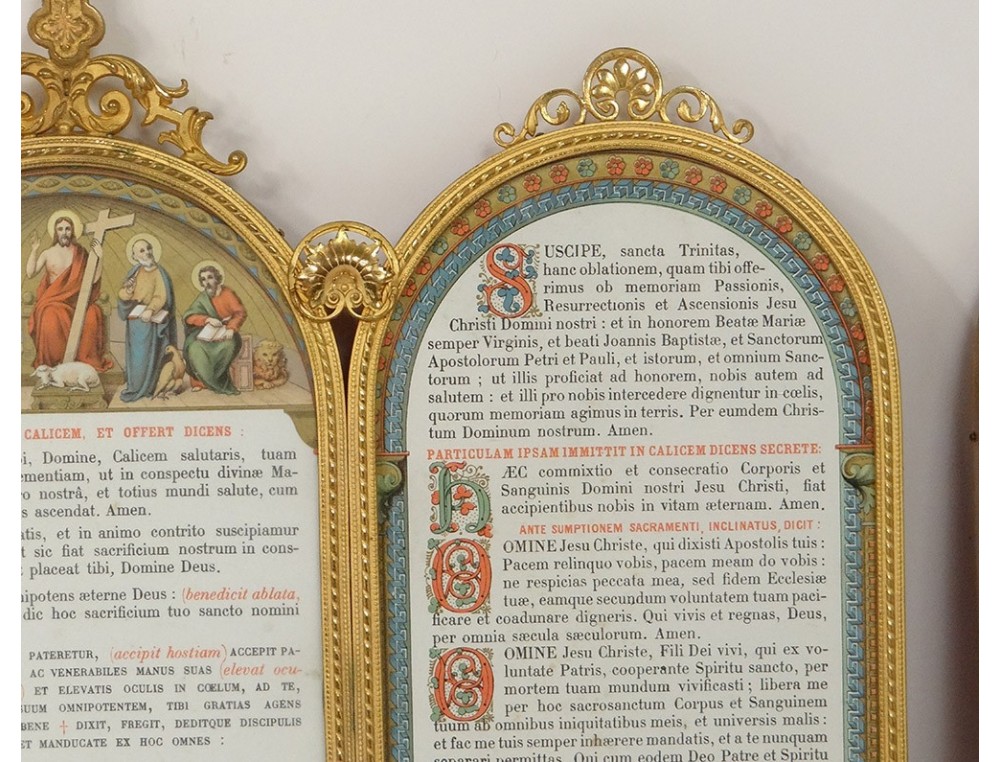 CALICEM, ET OFFERT DICENS :
Domine, Calicem salutaris, tuam
ut in conspectu divinæ Ma-
nostrâ, et totius mundi salute, cum
ascendat. Amen.
et in animo contrito suscipiamur
sic fiat sacrificium nostrum in cons-
placeat tibi, Domine Deus.
æterne Deus : (benedicit ablata,
hoc sacrificium tuo sancto nomini
PATERETUR, (accipit hostiam) ACCEPIT PA-
AC VENERABILES MANUS SUAS (elevat ocu-
ET ELEVATIS OCULIS IN CŒLUM, AD TE,
OMNIPOTENTEM, TIBI GRATIAS AGENS
BENE † DIXIT, FREGIT, DEDITQUE DISCIPULIS
ET MANDUCATE EX HOC OMNES :
SUSCIPE, sancta Trinitas,
hanc oblationem, quam tibi offe-
rimus ob memoriam Passionis,
Resurrectionis et Ascensionis Jesu
Christi Domini nostri : et in honorem Beatæ Mariæ
semper Virginis, et beati Joannis Baptistæ, et Sanctorum
Apostolorum Petri et Pauli, et istorum, et omnium Sanc-
torum ; ut illis proficiat ad honorem, nobis autem ad
salutem : et illi pro nobis intercedere dignentur in cœlis,
quorum memoriam agimus in terris. Per eumdem Chris-
tum Dominum nostrum. Amen.
PARTICULAM IPSAM IMMITTIT IN CALICEM DICENS SECRETE:
HÆC commixtio et consecratio Corporis et
Sanguinis Domini nostri Jesu Christi, fiat
accipientibus nobis in vitam æternam. Amen.
ANTE SUMPTIONEM SACRAMENTI, INCLINATUS, DICIT :
DOMINE Jesu Christe, qui dixisti Apostolis tuis :
Pacem relinquo vobis, pacem meam do vobis :
ne respicias peccata mea, sed fidem Ecclesiæ
tuæ, eamque secundum voluntatem tuam paci-
ficare et coadunare digneris. Qui vivis et regnas, Deus,
per omnia sæcula sæculorum. Amen.
DOMINE Jesu Christe, Fili Dei vivi, qui ex vo-
luntate Patris, cooperante Spiritu sancto, per
mortem tuam mundum vivificasti ; libera me
per hoc sacrosanctum Corpus et Sanguinem
tuum ab omnibus iniquitatibus meis, et universis malis :
et fac me tuis semper inhærere mandatis, et a te nunquam
separari permittas. Qui cum eodem Deo Patre et Spiritu